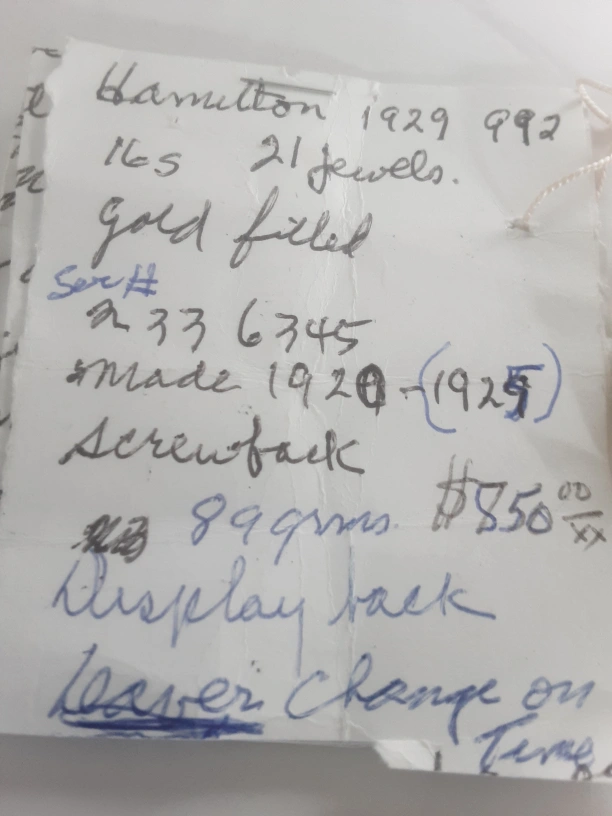 Hamilton 1929 992
16s 21 jewels.
Gold filled
Ser #
2336345
made 1920 - (1925)
Screwback
89 grms. $850 00/xx
Display back
Leaver Change on
Time